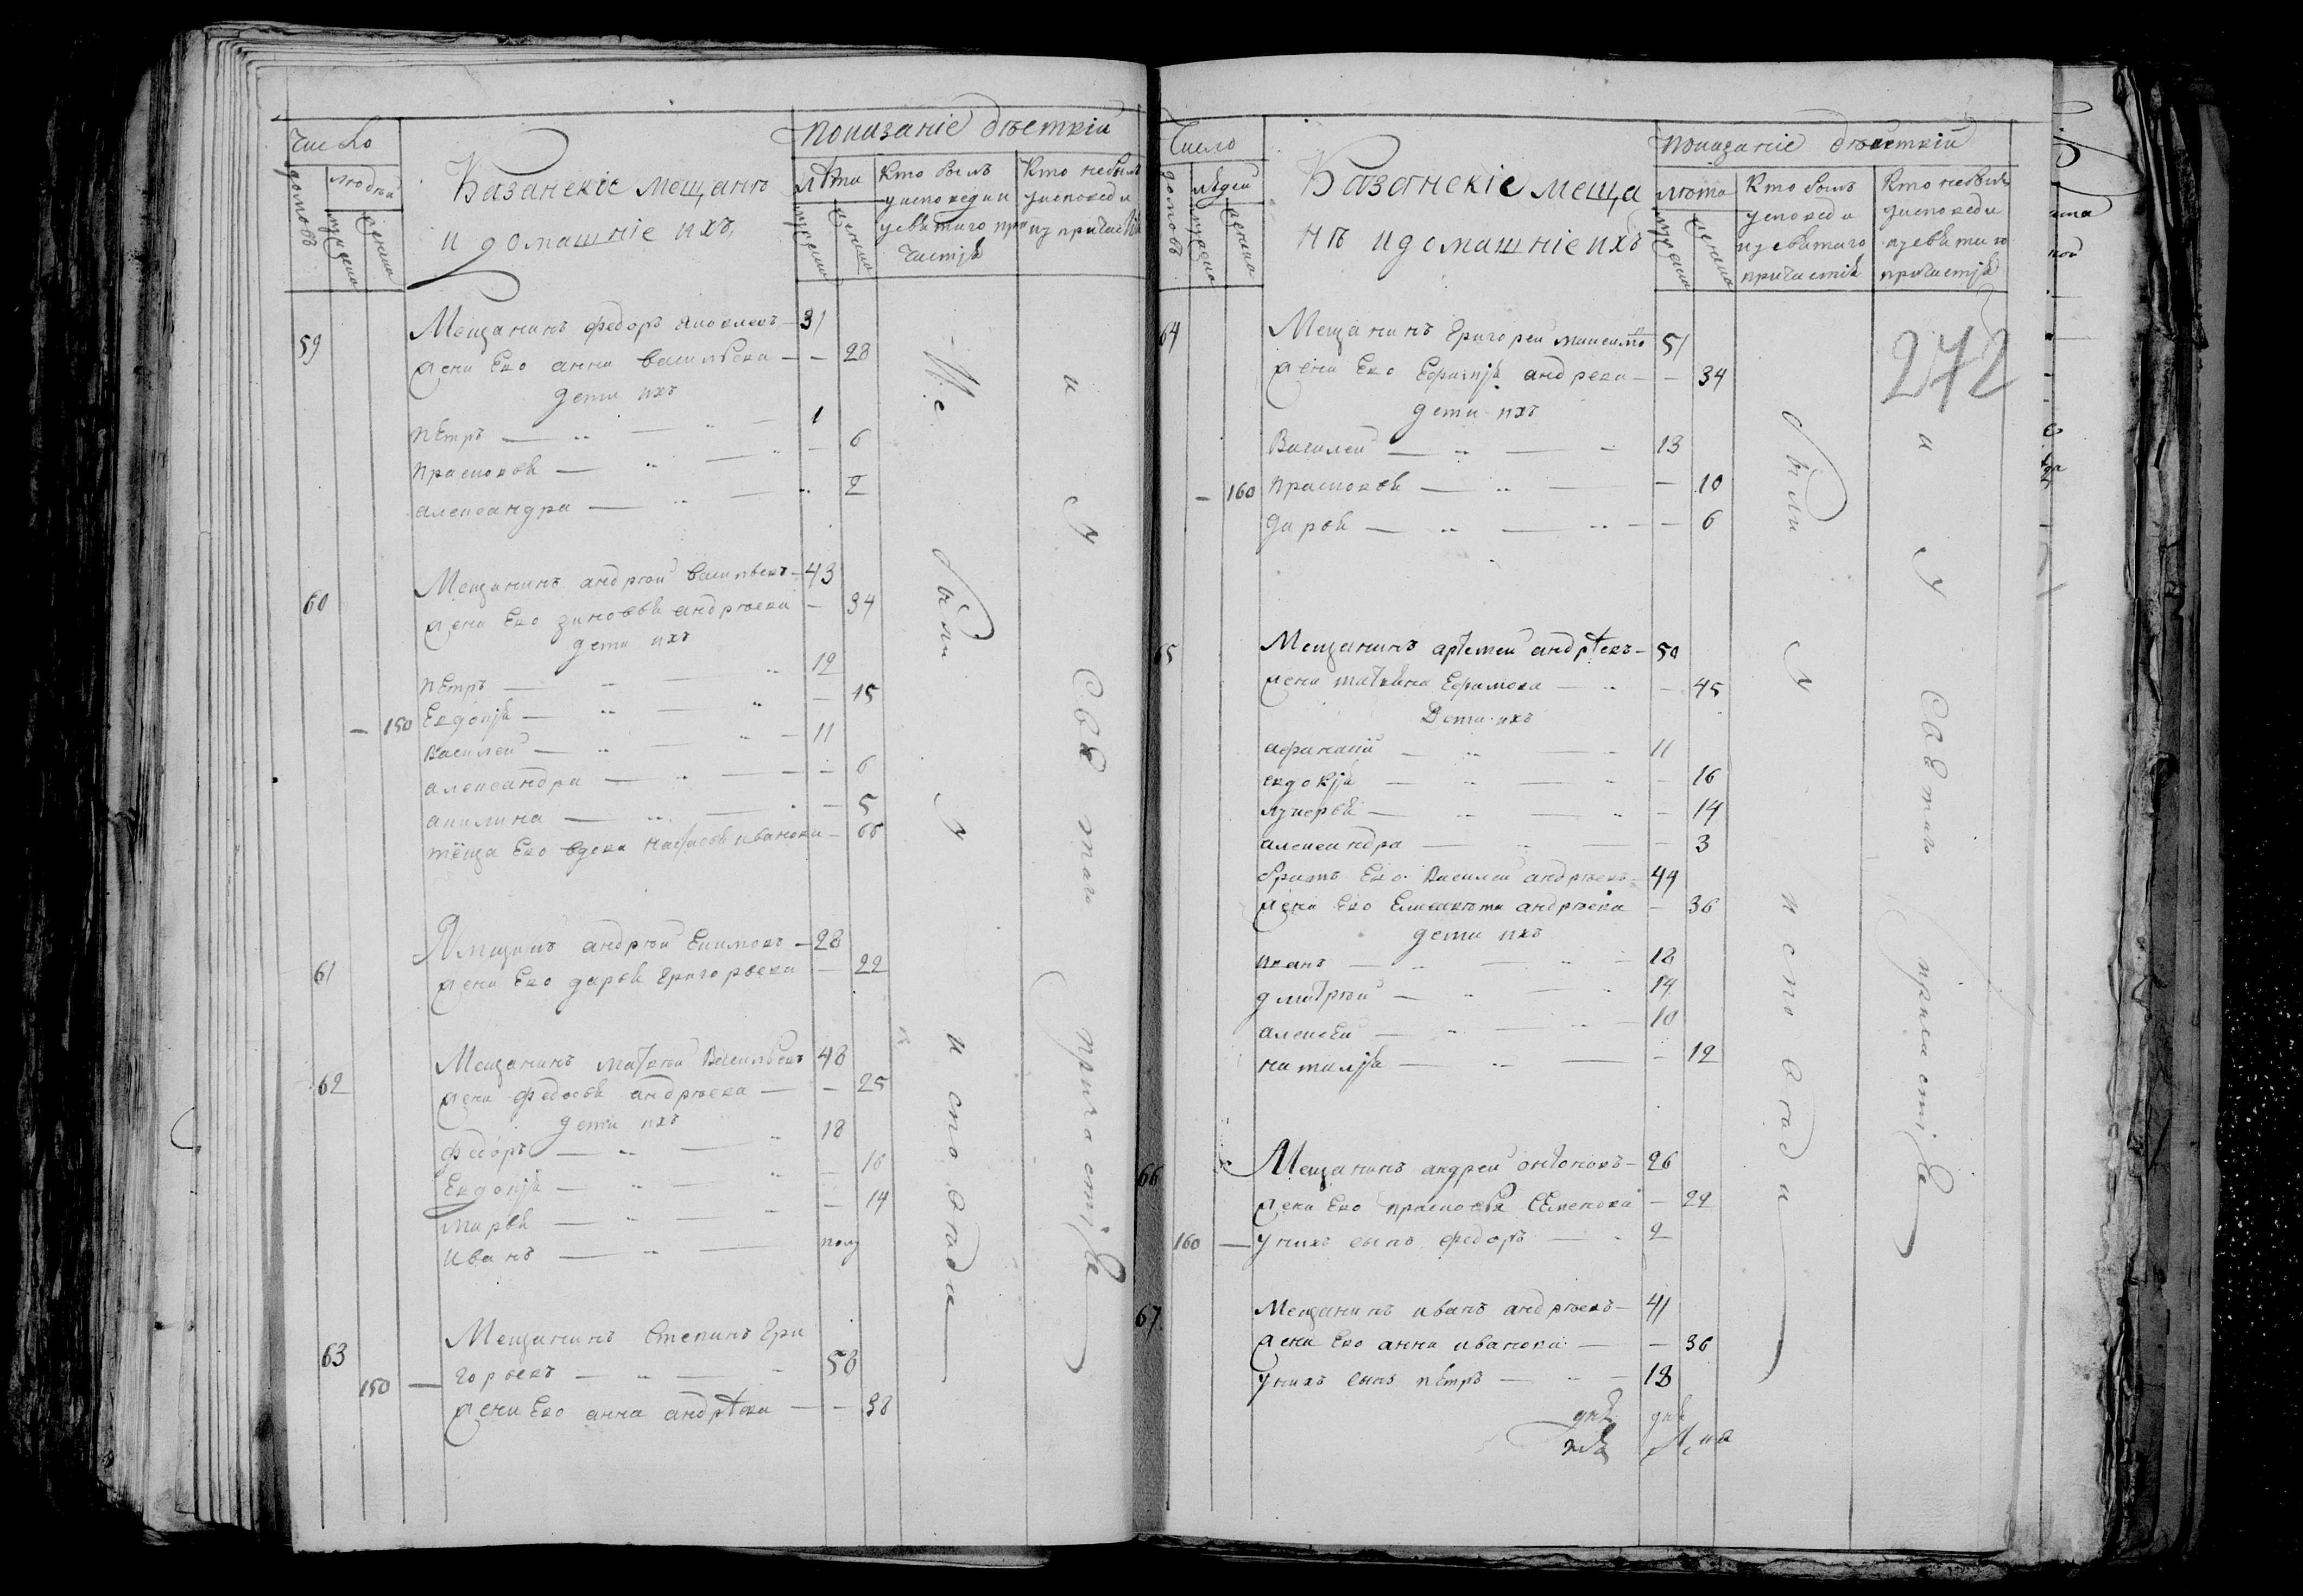 Число
Показаніе действій
домовъ
людей
мужеска
женска
Казанскіе мещанѣ
и домашніе ихъ
лѣта
мужеска
женска
Кто былъ
у исповеди и
у святаго при
частія
Кто небылъ
у исповеди
и у причастія
59
Мещанинъ федоръ яковлевъ — 31
жена Его анна васильева — — 28
дети ихъ
пЕтръ — 1
прасковья — 6
александра — 2
60
Мещанинъ андрѣй васильевъ — 43
жена Его зиновья андрѣева — 34
дети ихъ
пЕтръ — 19
Евдокія — — 15
— 150
Василей — 11
александра — — 6
акилина — — 5
тёща Его вдова настасья иванова — 66
61
Ямщикъ андрѣй Екимовъ — 28
жена Его дарья григорьева — 22
62
Мещанинъ матвѣй Васильевъ 48
жена федосья андрѣева — — 25
дети ихъ
федоръ — 18
Евдокія — — 16
марья — — 14
иванъ — полу
63
Мещанинъ Степанъ Гри
150 — горьевъ — 58
жена Его анна андрѣева — — 38
Не были у исповеди
и у святаго причастія
Число
Показаніе действій
домовъ
людей
мужеска
женска
Казанскіе меща
нѣ и домашніе ихъ
лѣта
мужеска
женска
Кто былъ
у исповеди
и у святаго
причастія
Кто небылъ
у исповеди
и у святаго
причастія
272
64
Мещанинъ Григорей максимо 51
жена Его Ефимія андреева — — 34
дети ихъ
Василей — 13
— 160 прасковья — — 10
дарья — — 6
65
Мещанинъ артемей андрѣевъ — 50
жена татьяна Ефимова — — 45
Дети ихъ
афанасій — 11
евдокія — — 16
лукерья — — 14
александра — — 3
братъ Его Василей андрѣевъ — 44
жена Его Елисавѣта андрѣева — 36
дети ихъ
иванъ — 18
дмитрѣй — 14
алексей — 10
наталія — — 12
66
Мещанинъ андрей антоновъ — 26
жена Его прасковья семенова — 22
160 — у нихъ сынъ федоръ — 2
67
Мещанинъ иванъ андрѣевъ — 41
жена Его анна иванова — — 36
у нихъ сынъ пЕтръ — 18
были у исповеди
и у святаго причастія